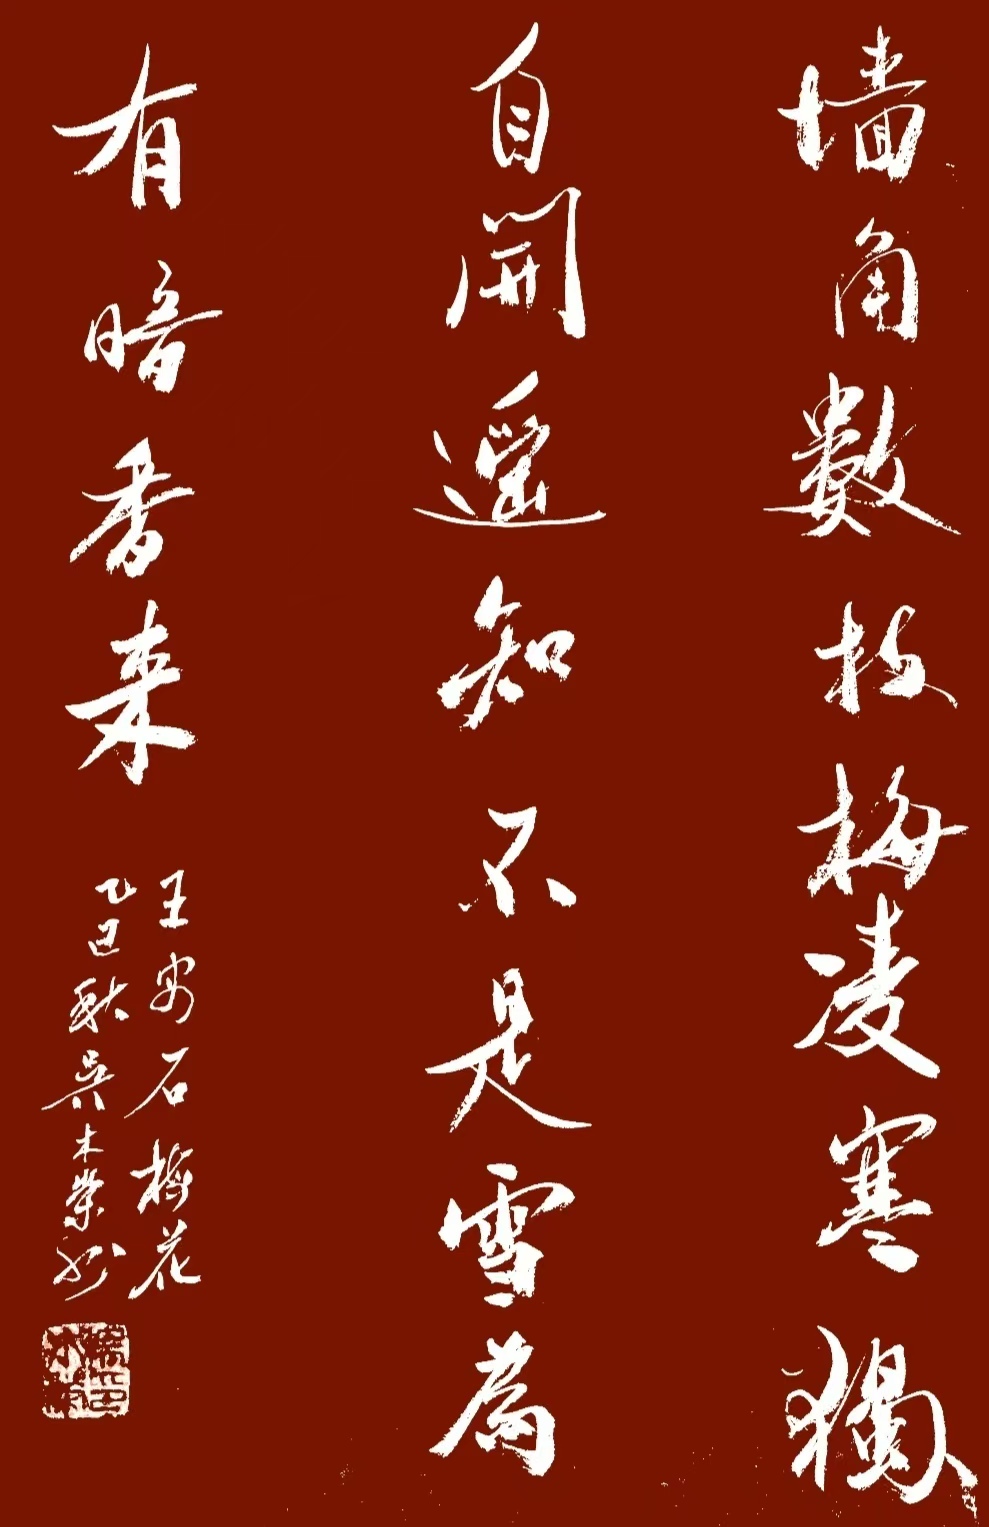 墙角數枝梅凌寒獨
自開遥知不是雪為
有暗香来
王安石梅花
乙巳秋吴木榮書